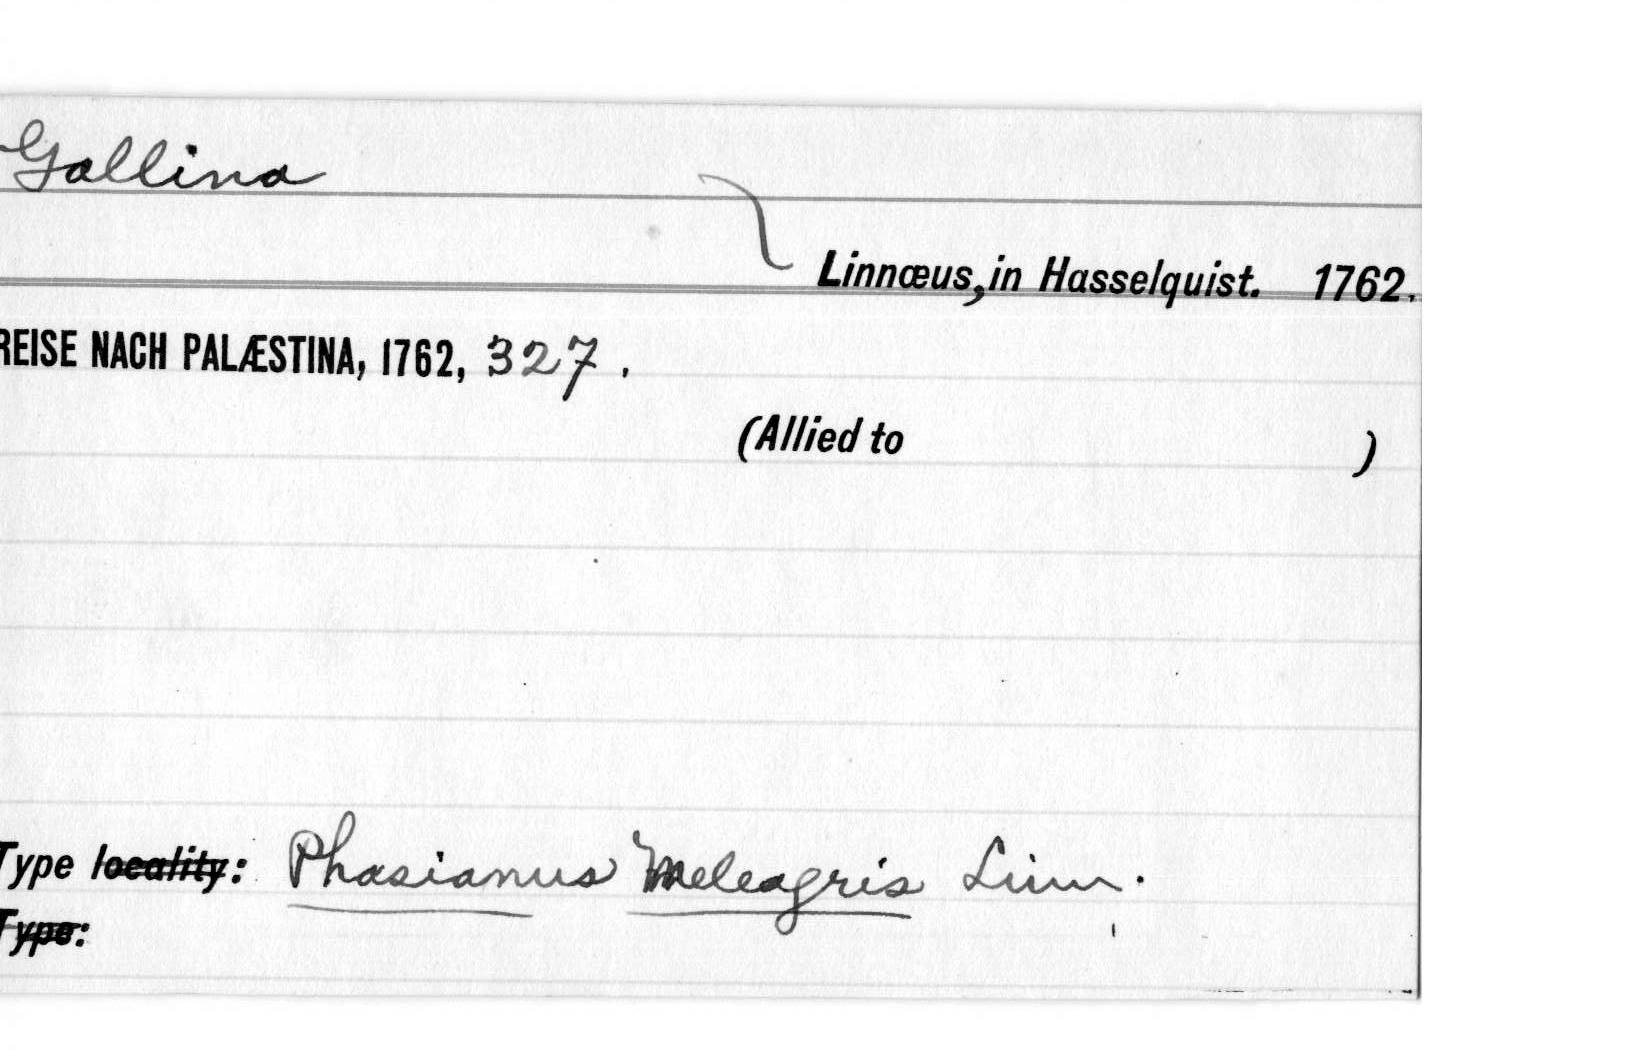 Gallina
Linnœus, in Hasselquist. 1762.
REISE NACH PALÆSTINA, 1762, 327.
(Allied to )
Type locality: Phasianus Meleagris Linn.
Type: